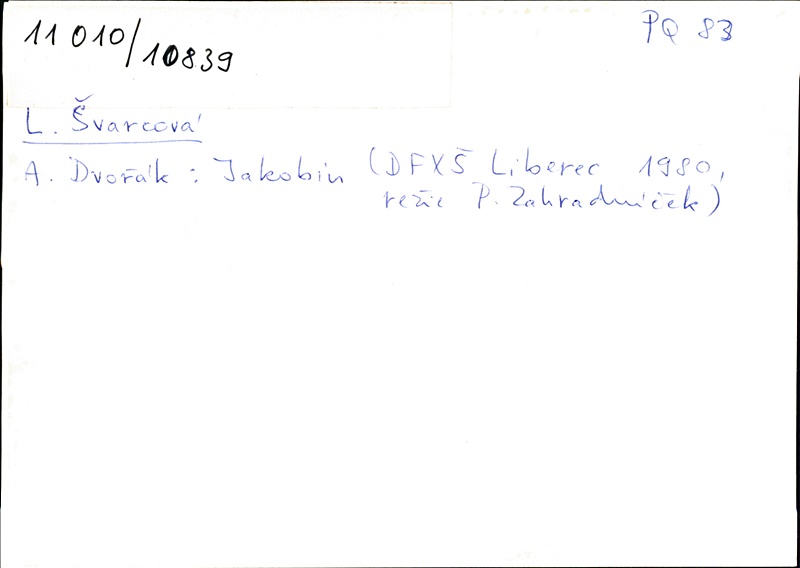 11 010/10839
PQ 83
L. Švarcová
A. Dvořák: Jakobin (DFXŠ Liberec 1980,
režie P. Zahradníček)